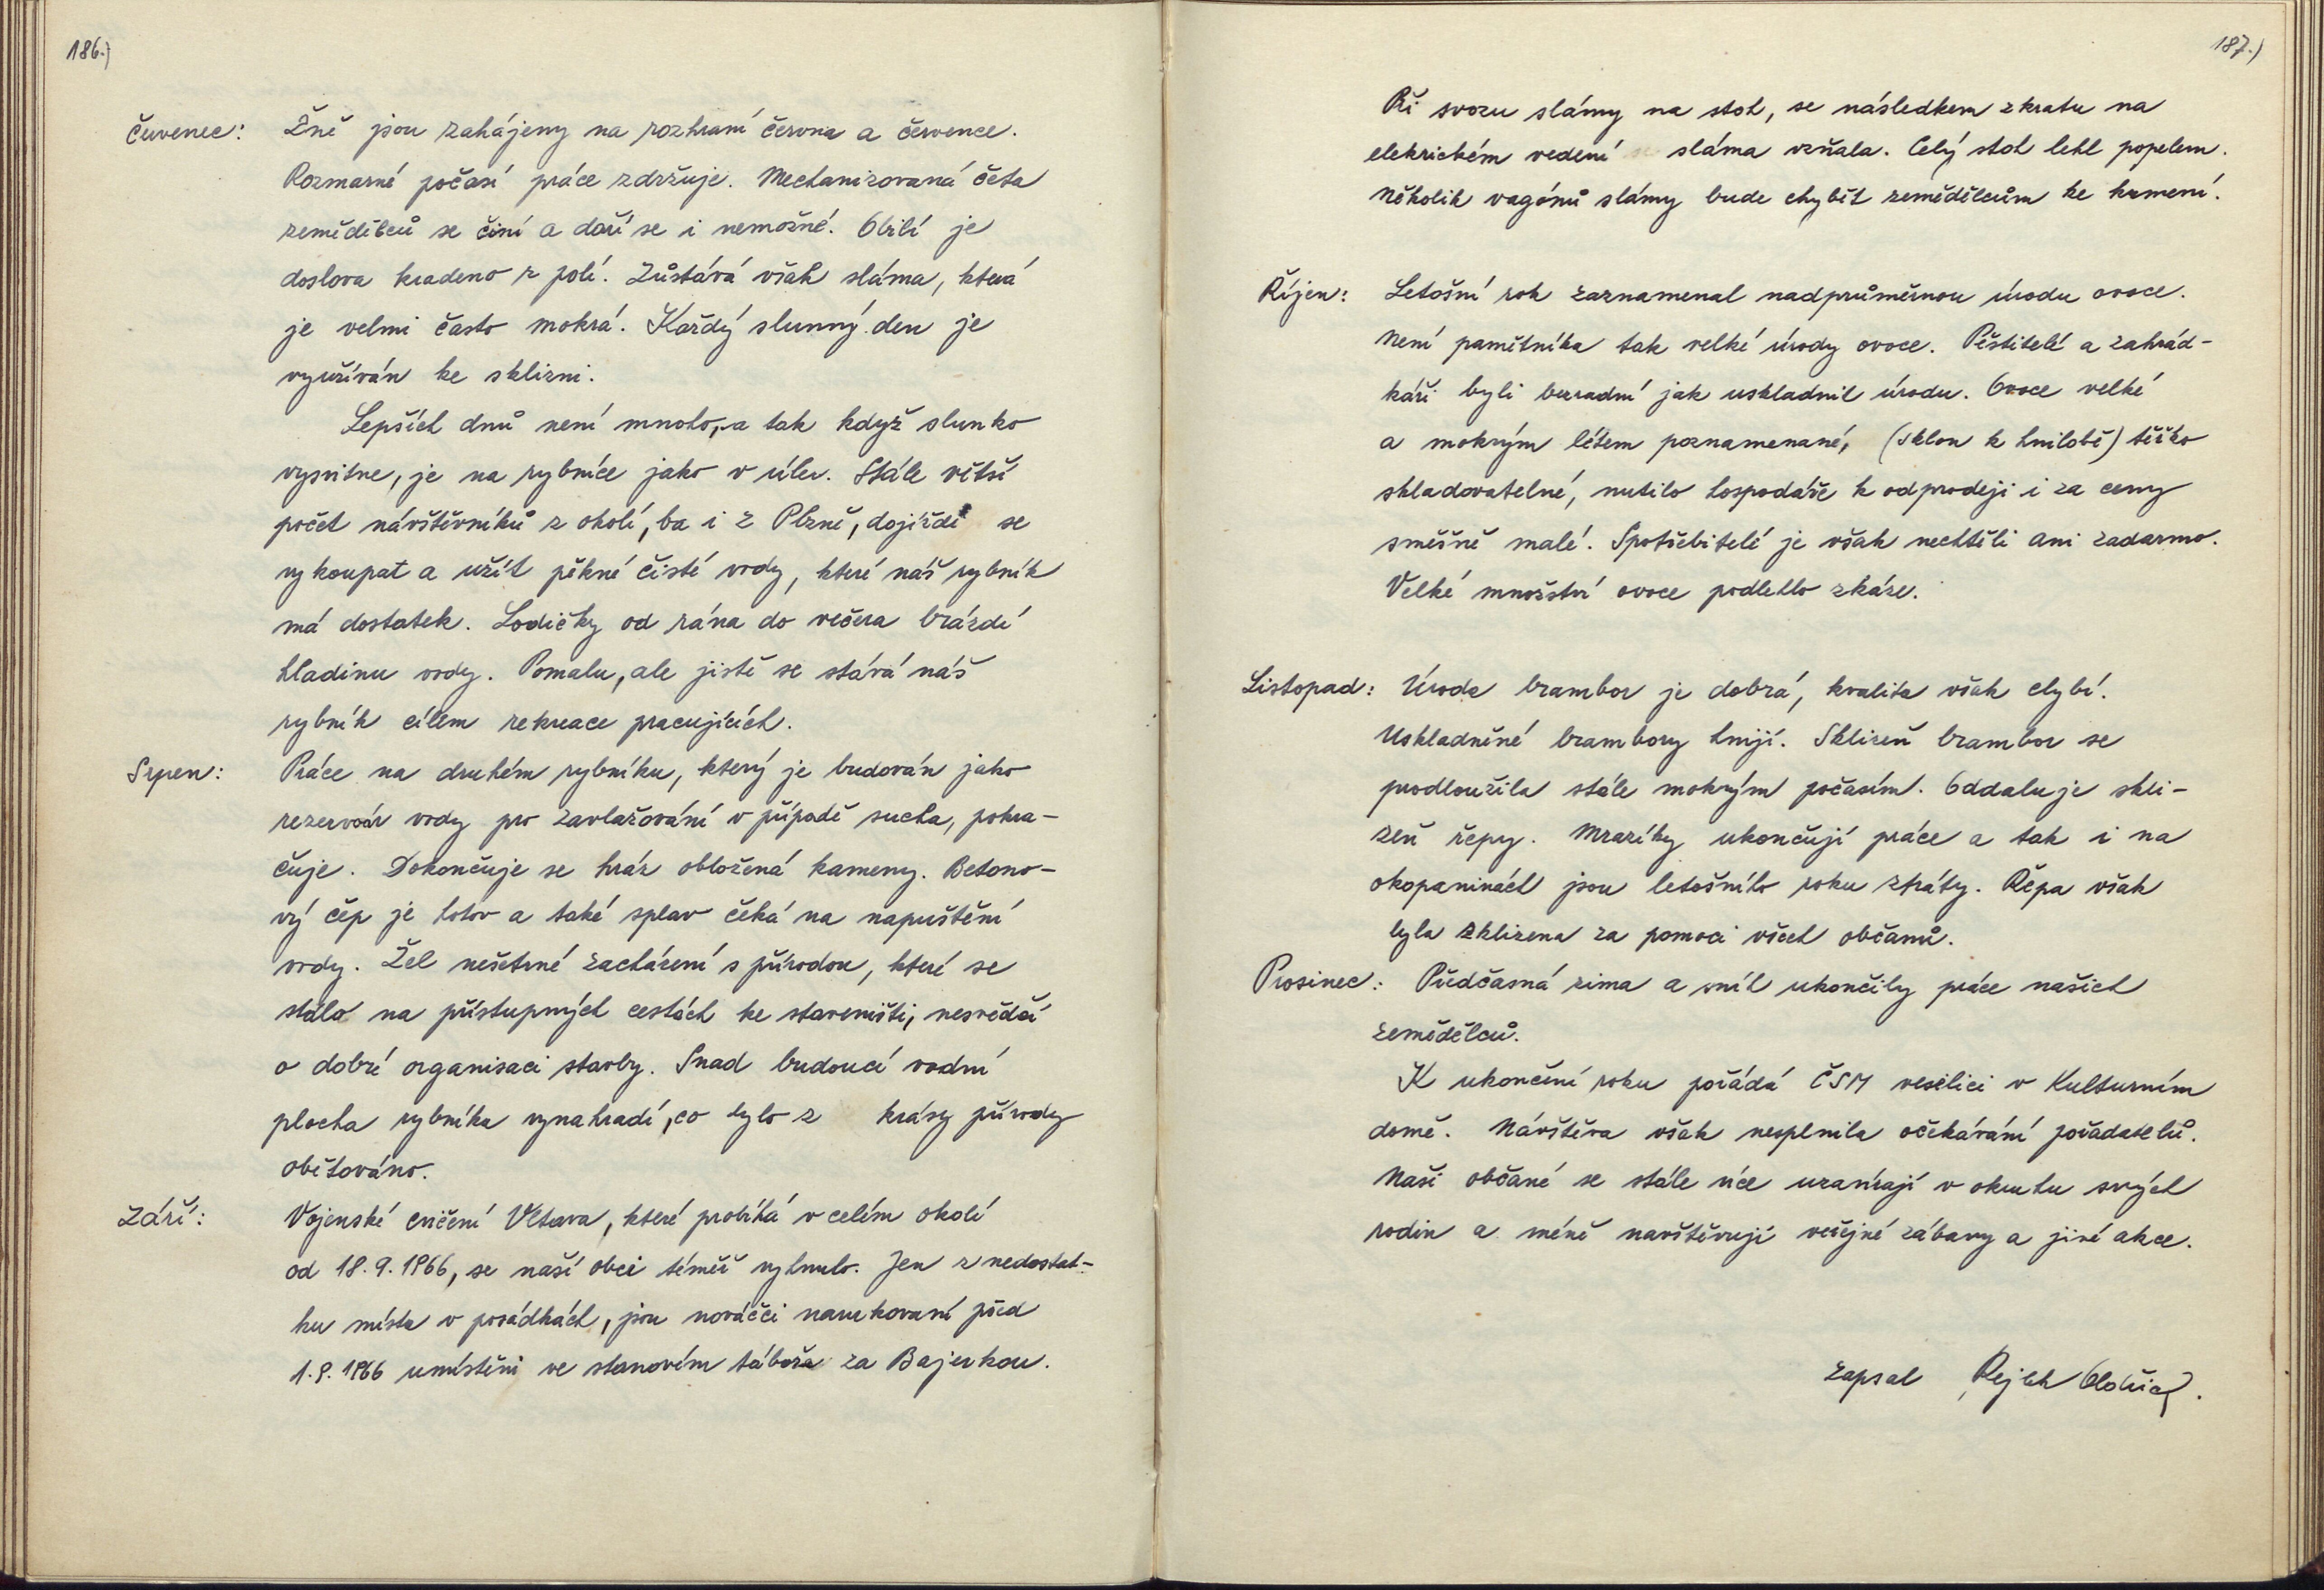 186.)
Červenec: Žně jsou zahájeny na rozhraní června a července.
Rozmarné počasí práce zdržuje. Mechanizovaná četa
zemědělců se činí a daří se i nemožné. Obilí je
doslova kradeno z polí. Zůstává však sláma, která
je velmi často mokrá. Každý slunný den je
využíván ke sklizni.
Lepších dnů není mnoho, a tak když slunko
vysvitne, je na rybníce jako v úlu. Stále větší
počet návštěvníků z okolí, ba i z Plzně, dojíždí se
vykoupat a užít pěkné čisté vody, které náš rybník
má dostatek. Lodičky od rána do večera brázdí
hladinu vody. Pomalu, ale jistě se stává náš
rybník cílem rekreace pracujících.
Srpen: Práce na druhém rybníku, který je budován jako
rezervoár vody pro zavlažování v případě sucha, pokra-
čuje. Dokončuje se hráz obložená kameny. Betono-
vý čep je hotov a také splav čeká na napuštění
vody. Žel nešetrné zacházení s přírodou, které se
stálo na přístupných cestách ke staveništi, nesvědčí
o dobré organisaci stavby. Snad budoucí vodní
plocha rybníka vynahradí, co bylo z krásy přírody
obětováno.
Září: Vojenské cvičení Vltava, které probíhá v celém okolí
od 18.9.1966, se naší obci téměř vyhnulo. Jen z nedostat-
ku místa v posádkách, jsou nováčci narukovaní před
1.9.1966 umístěni ve stanovém táboře za Bajerkou.
187.)
Při svozu slámy na stoh, se následkem zkratu na
elekrickém vedení sláma vzňala. Celý stoh lehl popelem.
Několik vagónů slámy bude chybět zemědělcům ke krmení.
Říjen: Letošní rok zaznamenal nadprůměrnou úrodu ovoce.
Není pamětníka tak velké úrody ovoce. Pěstitelé a zahrád-
káři byli bezradní jak uskladnit úrodu. Ovoce velké
a mokrým létem poznamenané, (sklon k hnilobě) těžko
skladovatelné, nutilo hospodáře k odprodeji i za ceny
směšně malé. Spotřebitelé je však nechtěli ani zadarmo.
Velké množství ovoce podlehlo zkáze.
Listopad: Úroda brambor je dobrá, kvalita však chybí.
Uskladněné brambory hnijí. Sklizeň brambor se
prodloužila stále mokrým počasím. Oddaluje skli-
zeň řepy. Mrazíky ukončují práce a tak i na
okopaninách jsou letošního roku ztráty. Řepa však
byla sklizena za pomoci všech občanů.
Prosinec: Předčasná zima a sníh ukončily práce našich
zemědělců.
K ukončení roku pořádá ČSM veselici v Kulturním
domě. Návštěva však nesplnila očekávání pořadatelů.
Naši občané se stále více uzavírají v okruhu svých
rodin a méně navštěvují veřejné zábavy a jiné akce.
zapsal Rejlek Oldřich.